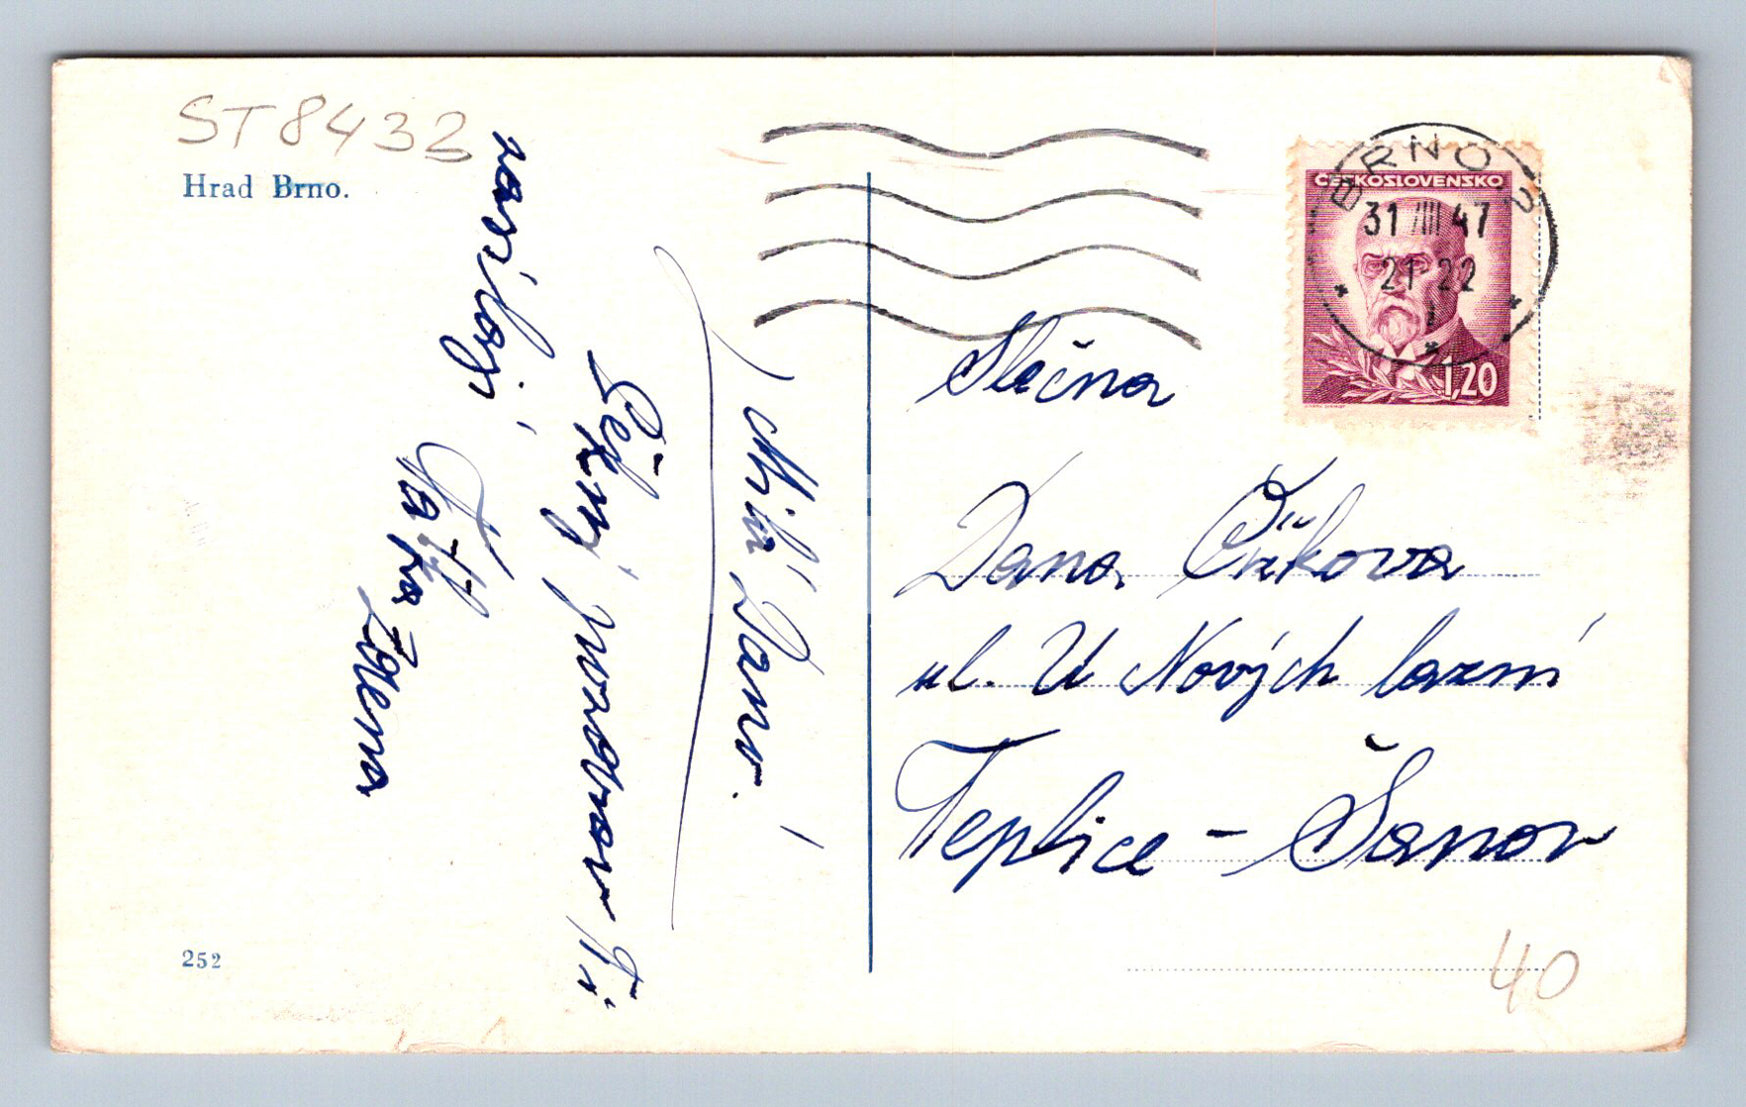 ST 8433
Hrad Brno.
Milá Dano!
Pěkný pozdrav Ti
zasílají
Táta
Zdena
252
BRNO 2
31 VIII 47
21-22
ČESKOSLOVENSKO
1,20
Slečna
Dana Čížkova
ul. U Nových lazní
Teplice - Šanov
40